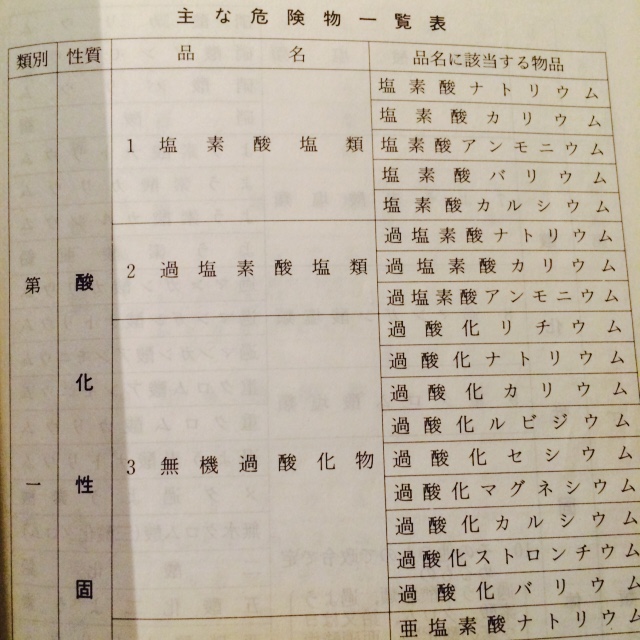 主な危険物一覧表
類別 性質 品名 品名に該当する物品
第一
酸化性固
1 塩素酸塩類
塩素酸ナトリウム
塩素酸カリウム
塩素酸アンモニウム
塩素酸バリウム
塩素酸カルシウム
2 過塩素酸塩類
過塩素酸ナトリウム
過塩素酸カリウム
過塩素酸アンモニウム
3 無機過酸化物
過酸化リチウム
過酸化ナトリウム
過酸化カリウム
過酸化ルビジウム
過酸化セシウム
過酸化マグネシウム
過酸化カルシウム
過酸化ストロンチウム
過酸化バリウム
亜塩素酸ナトリウム